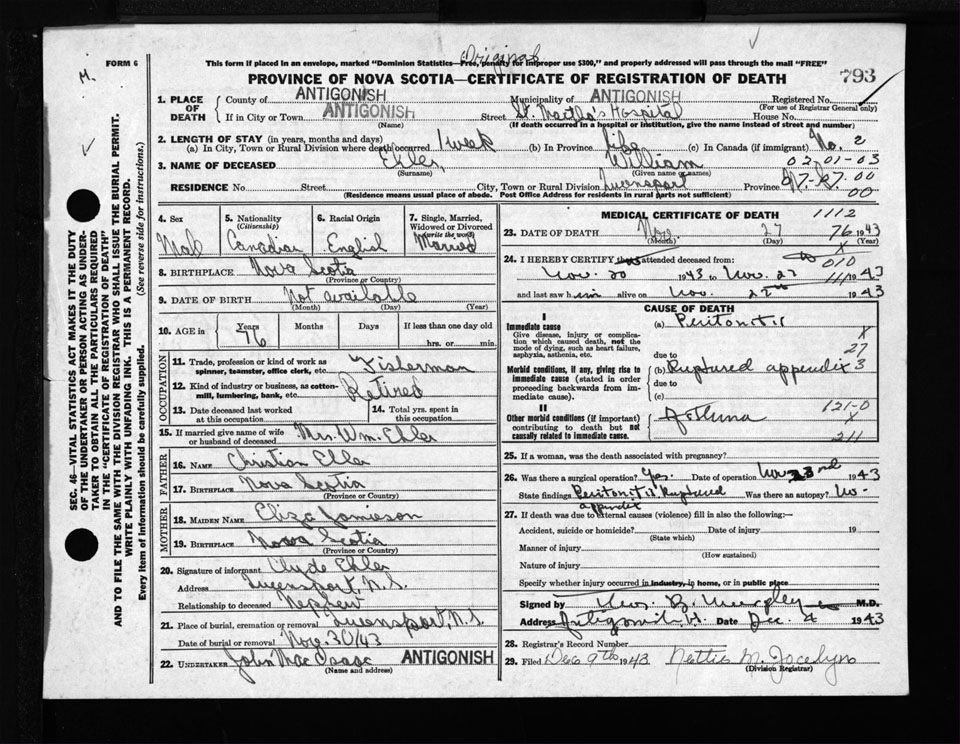 Original
FORM 6
This form if placed in an envelope, marked "Dominion Statistics—Free, penalty for improper use $300," and properly addressed will pass through the mail "FREE"
M.
PROVINCE OF NOVA SCOTIA—CERTIFICATE OF REGISTRATION OF DEATH
793
1. PLACE OF DEATH
County of ANTIGONISH Municipality of ANTIGONISH Registered No.
(For use of Registrar General only)
If in City or Town ANTIGONISH Street St. Martha's Hospital House No.
(Name) (If death occurred in a hospital or institution, give the name instead of street and number)
2. LENGTH OF STAY (in years, months and days)
(a) In City, Town or Rural Division where death occurred 1 week (b) In Province life (c) In Canada (if immigrant) No. 2
3. NAME OF DECEASED Ehler William 02-01-03
(Surname) (Given name or names)
RESIDENCE No. Street City, Town or Rural Division Queensport Province
(Residence means usual place of abode. Post Office Address for residents in rural parts not sufficient) 00
SEC. 46—VITAL STATISTICS ACT MAKES IT THE DUTY
OF THE UNDERTAKER OR PERSON ACTING AS UNDER-
TAKER TO OBTAIN ALL THE PARTICULARS REQUIRED
IN THE "CERTIFICATE OF REGISTRATION OF DEATH"
AND TO FILE THE SAME WITH THE DIVISION REGISTRAR WHO SHALL ISSUE THE BURIAL PERMIT.
WRITE PLAINLY WITH UNFADING INK. THIS IS A PERMANENT RECORD.
Every item of information should be carefully supplied. (See reverse side for instructions.)
4. Sex
Mal
5. Nationality
(Citizenship)
Canadian
6. Racial Origin
English
7. Single, Married,
Widowed or Divorced
(write the word)
Married
8. BIRTHPLACE Nova Scotia
(Province or Country)
9. DATE OF BIRTH Not available
(Month) (Day) (Year)
10. AGE in Years Months Days If less than one day old
76 hrs. or min.
OCCUPATION
11. Trade, profession or kind of work as
spinner, teamster, office clerk, etc. Fisherman
12. Kind of industry or business, as cotton-
mill, lumbering, bank, etc. Retired
13. Date deceased last worked
at this occupation
14. Total yrs. spent in
this occupation
15. If married give name of wife
or husband of deceased Mrs. Wm. Ehler
FATHER
16. NAME Christian Ehler
17. BIRTHPLACE Nova Scotia
(Province or Country)
MOTHER
18. MAIDEN NAME Eliza Jamieson
19. BIRTHPLACE Nova Scotia
(Province or Country)
20. Signature of informant Clyde Ehler
Address Queensport, N.S.
Relationship to deceased Nephew
21. Place of burial, cremation or removal Queensport, N.S.
Date of burial or removal Nov. 30/43
22. UNDERTAKER John MacIsaac ANTIGONISH
(Name and address)
MEDICAL CERTIFICATE OF DEATH 1112
23. DATE OF DEATH Nov. 27 76 1943
(Month) (Day) (Year)
X
24. I HEREBY CERTIFY that I attended deceased from: 010
Nov. 20 1943 to Nov. 27 1943
and last saw him alive on Nov. 1943
CAUSE OF DEATH
I
Immediate cause
Give disease, injury or complica-
tion which caused death, not the
mode of dying, such as heart failure,
asphyxia, asthenia, etc.
(a) Peritonitis
X
due to 27
Morbid conditions, if any, giving rise to
immediate cause (stated in order
proceeding backwards from im-
mediate cause).
(b) Ruptured appendix 3
due to
(c)
II
Other morbid conditions (if important)
contributing to death but not
causally related to immediate cause.
Asthma
121-0
X
211
25. If a woman, was the death associated with pregnancy?
26. Was there a surgical operation? Yes. Date of operation Nov 23rd 1943
State findings Peritonitis Ruptured appendix Was there an autopsy? No
27. If death was due to external causes (violence) fill in also the following:—
Accident, suicide or homicide? Date of injury 19
(State which)
Manner of injury
(How sustained)
Nature of injury
Specify whether injury occurred in industry, in home, or in public place
Signed by B. Murphy M.D.
Address Antigonish Date Dec. 4 1943
28. Registrar's Record Number
29. Filed Dec 9th 1943 Nettie M. Jocelyn
(Division Registrar)